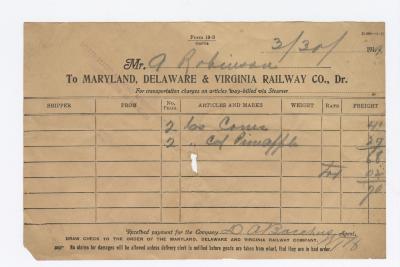 Form 19-3
3/30/ 191
Mr. A Robinson
To MARYLAND, DELAWARE & VIRGINIA RAILWAY CO., Dr.
For transportation charges on articles way-billed via Steamer
SHIPPER FROM No. PKGS. ARTICLES AND MARKS WEIGHT RATE FREIGHT
2 Corn
2 " Pineapple 29
68
02
70
Received payment for the Company, Agent,
DRAW CHECK TO THE ORDER OF THE MARYLAND, DELAWARE AND VIRGINIA RAILWAY COMPANY,
No claims for damages will be allowed unless delivery clerk is notified before goods are taken from wharf, that they are in bad order.